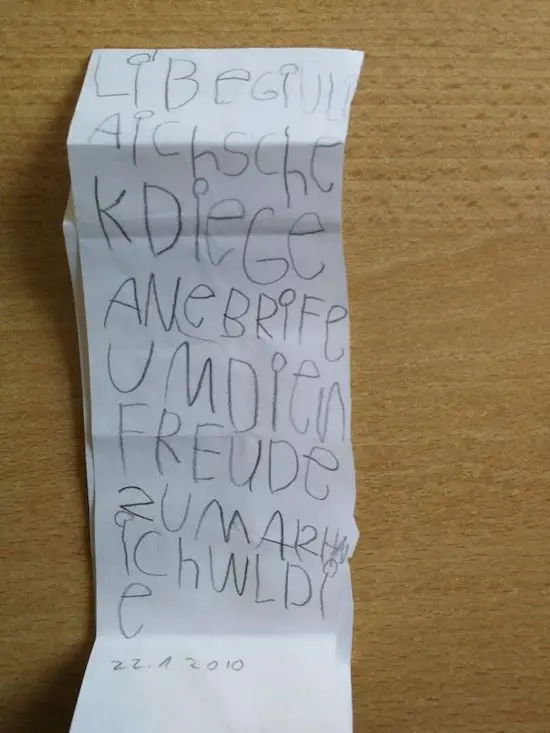 LiBeGiULi
AichSche
KDieGe
ANeBRiFe
UMDieN
FREUDe
ZUMARHN
ichWLDi
e
22.1 2010